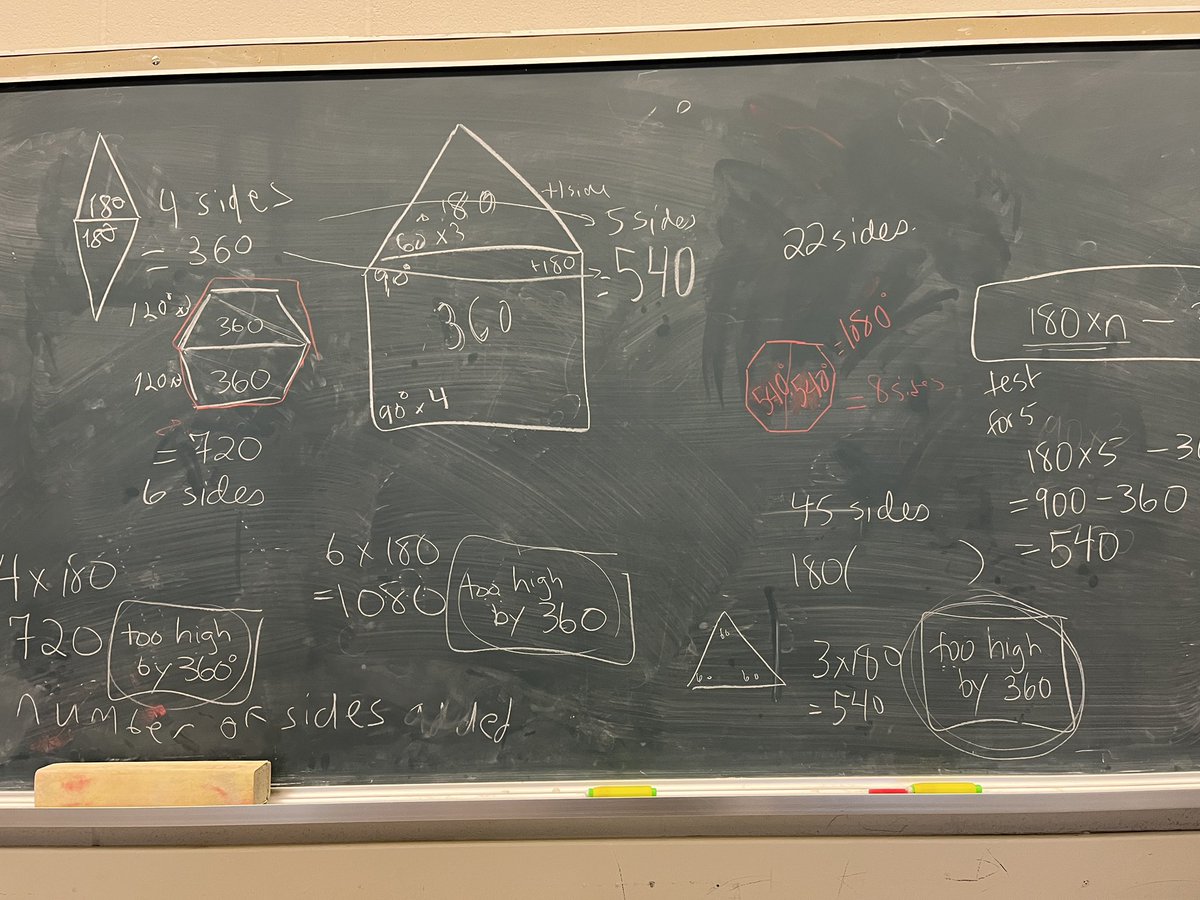 180
180
4 sides
= 360
120°
360
120
360
= 720
6 sides
180
60 × 3
+1 side
90°
+180
360
90° × 4
5 sides
= 540
22 sides.
540° 540°
= 8 sides
180×n −
test
for 5
180×5 − 36
= 900 − 360
= 540
45 sides
180( )
4 × 180
720
too high
by 360°
6 × 180
= 1080
too high
by 360
60
60
3×180
= 540
too high
by 360
number of sides added